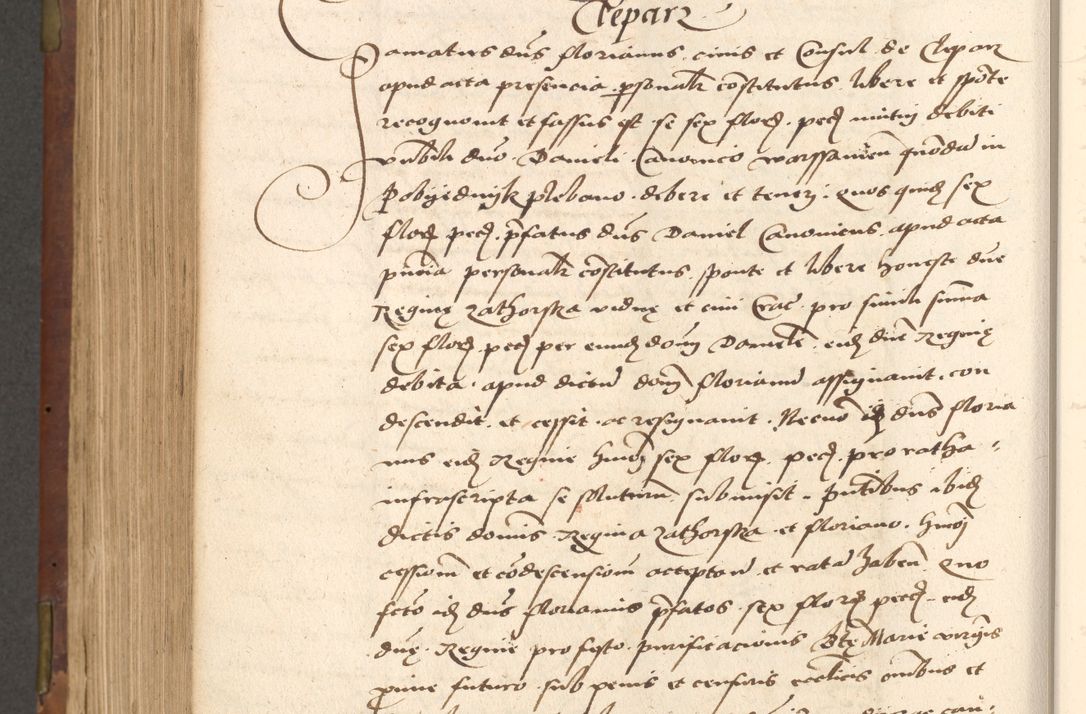 Clepardz
Famatus dns Florianus civis et Consul de Clepardz
apud acta presencia psonalr constitutus libere et sponte
recognovit et fassus est se sex flor. pec. mutuj debiti
Vnrbili dno Danieli Canonico warssavien quondam in
Pobyednyk plebano debere et teneri. Quos quid. sex
flor. pec. pfatus dns Daniel Canonicus apud acta
pntia personalr constitutus sponte et libere honeste dne
Regine Zathorska vidue et civi Crac. pro simili summa
sex flor. pec. per eund. dom. Daniele eid. dne Regine
debita apud dictu dom. Florianu assignavit, con
descendit et cessit ac resignavit. Necno id. dns Floria
nus eid. Regine hmoj sex flor. pec. pro ratha
infrascripta se soluturu submisit. Pntibus ibid.
dictis dominis Regina Zathorska et Floriano hmoj
cessione et condescensione acceptan. et rata haben. Quo
fcto id. dns Florianus pfatos sex flor. pec. eid.
dne Regine pro festo purificacionis Bte Marie virginis
proxime futuro sub penis et censuris ecclicis omibus et